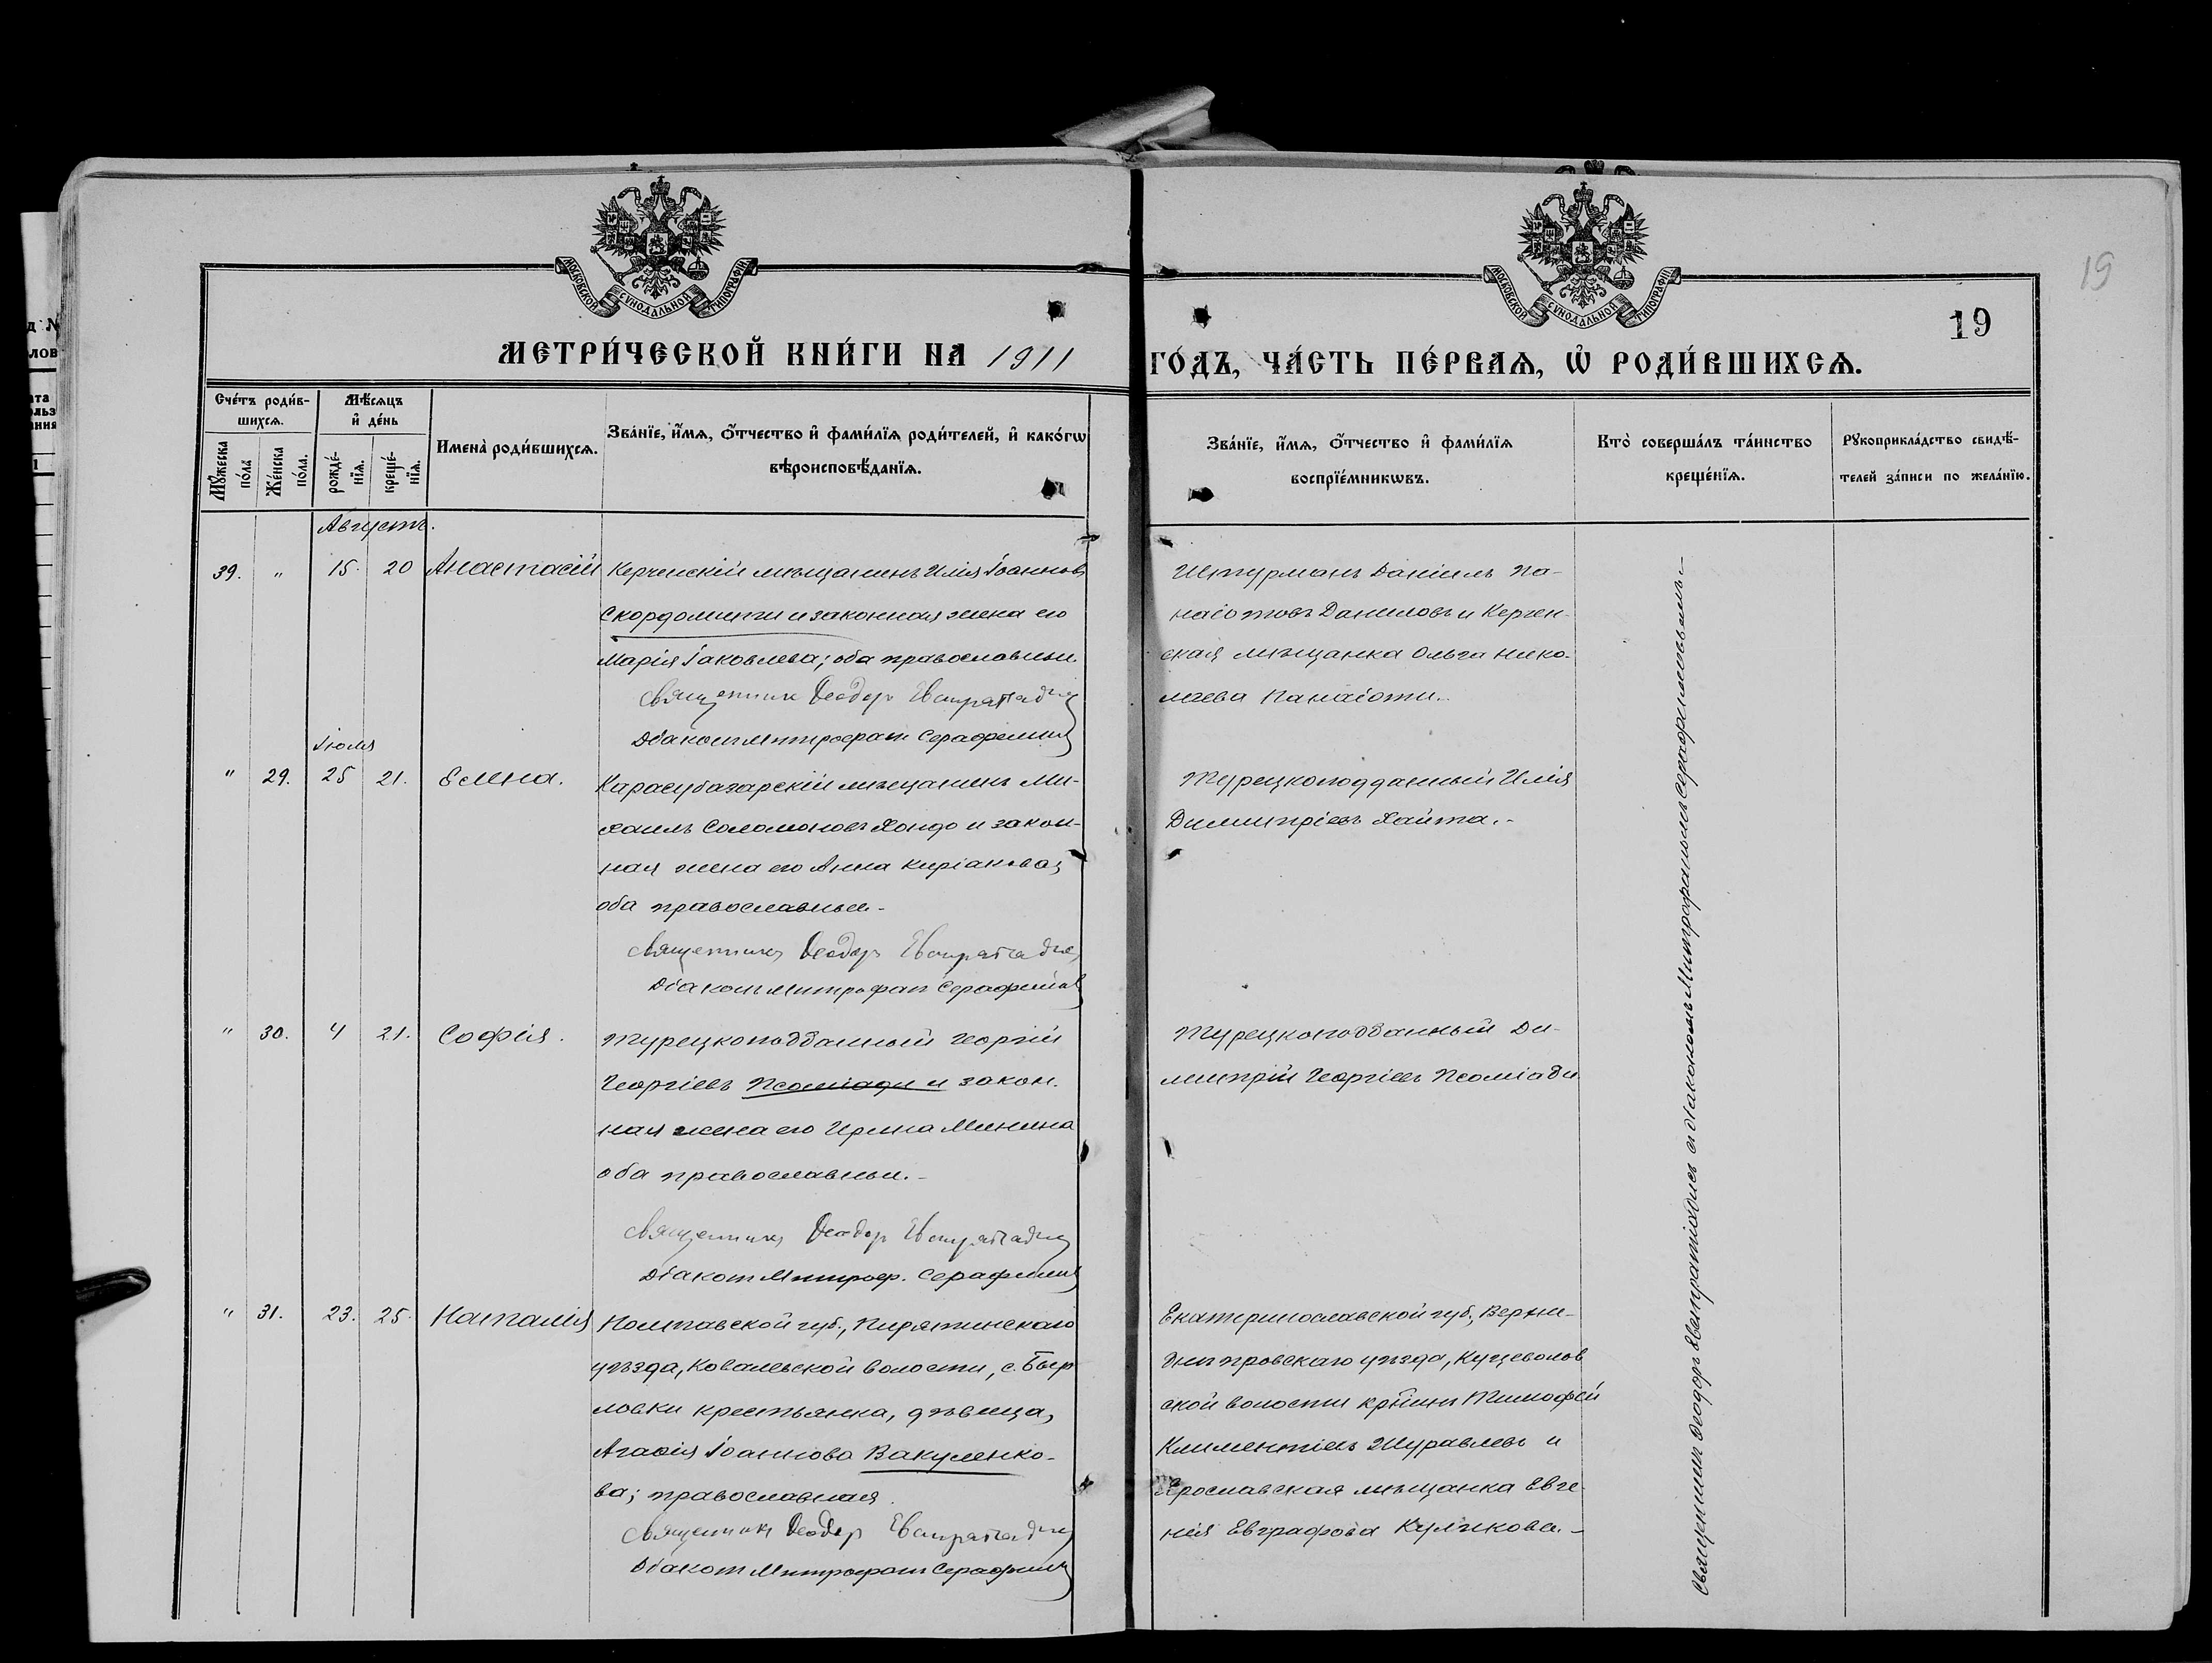 МОСКОВСКОЙ СУНОДАЛЬНОЙ ТИПОГРАФІИ
МОСКОВСКОЙ СУНОДАЛЬНОЙ ТИПОГРАФІИ
19
19
МЕТРИ́ЧЕСКОЙ КНИ́ГИ НА 1911
ГО́ДЪ, ЧА́СТЬ ПЕ́РВАѦ, Ѡ҆ РОДИ́ВШИХСѦ.
Сче́тъ роди́в-
шихсѧ.
Мꙋ́жеска по́ла
Же́нска по́ла.
Мѣ́сѧцъ
и҆ де́нь
рожде́-
нїѧ.
креще́-
нїѧ.
Имена̀ роди́вшихсѧ.
Зва́нїе, и҆́мѧ, ѻ҆́тчество и҆ фами́лїѧ роди́телей, и҆ како́гѡ
вѣроисповѣ́данїѧ.
Зва́нїе, и҆́мѧ, ѻ҆́тчество и҆ фами́лїѧ
воспрїе́мникѡвъ.
Кто̀ соверша́лъ та́инство
креще́нїѧ.
Рꙋкоприкла́дство свидѣ́-
телей за́писи по жела́нїю.
Августъ.
39. " 15. 20 Анастасій
Керченскій мѣщанинъ Илія Іоанновъ
Скордомити и законная жена его
Марія Іаковлева; оба православные.
Священникъ Ѳеодоръ Евстратіадис
Діаконъ Митрофанъ Серафимов
Штурманъ Даніилъ Па-
наіотовъ Даниловъ и Керчен-
ская мѣщанка Ольга Нико-
лаева Панаіоти.
Іюля
" 29. 25 21. Елена.
Карасубазарскій мѣщанинъ Ми-
хаилъ Соломоновъ Хондо и закон-
ная жена его Анна Киріакова;
оба православные.
Священникъ Ѳеодоръ Евстратіадис
Діаконъ Митрофанъ Серафимов
Турецкоподданный Илія
Димитріевъ Хайта.
" 30. 4 21. Софія.
Турецкоподданный Георгій
Георгіевъ Псоміади и закон-
ная жена его Ирина Минина
оба православные.
Священникъ Ѳеодоръ Евстратіадис
Діаконъ Митроф. Серафимов
Турецкоподданный Ди-
митрій Георгіевъ Псоміади
" 31. 23. 25. Наталія
Полтавской губ., Пирятинскаго
уѣзда, Ковалевской волости, с.
ловки крестьянка, дѣвица,
Агаѳія Іоаннова Вакуленко-
ва; православная.
Священникъ Ѳеодоръ Евстратіадис
Діаконъ Митрофанъ Серафимов
Екатеринославской губ., Верхне-
днѣпровскаго уѣзда, Куцеволов
ской волости кр-нинъ Тимофей
Климентіевъ Журавлевъ и
Ярославская мѣщанка Евге-
нія Евграфова Куликова.
Священникомъ Ѳеодоромъ Евстратіадисъ и діакономъ Митрофаномъ Серафимовымъ.